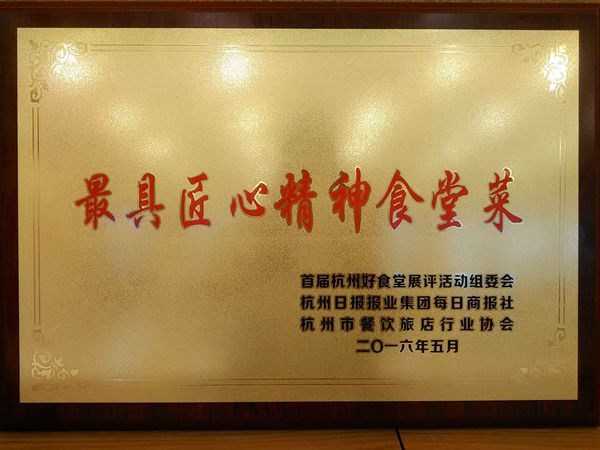 最具匠心精神食堂菜
首届杭州好食堂展评活动组委会
杭州日报报业集团每日商报社
杭州市餐饮旅店行业协会
二〇一六年五月